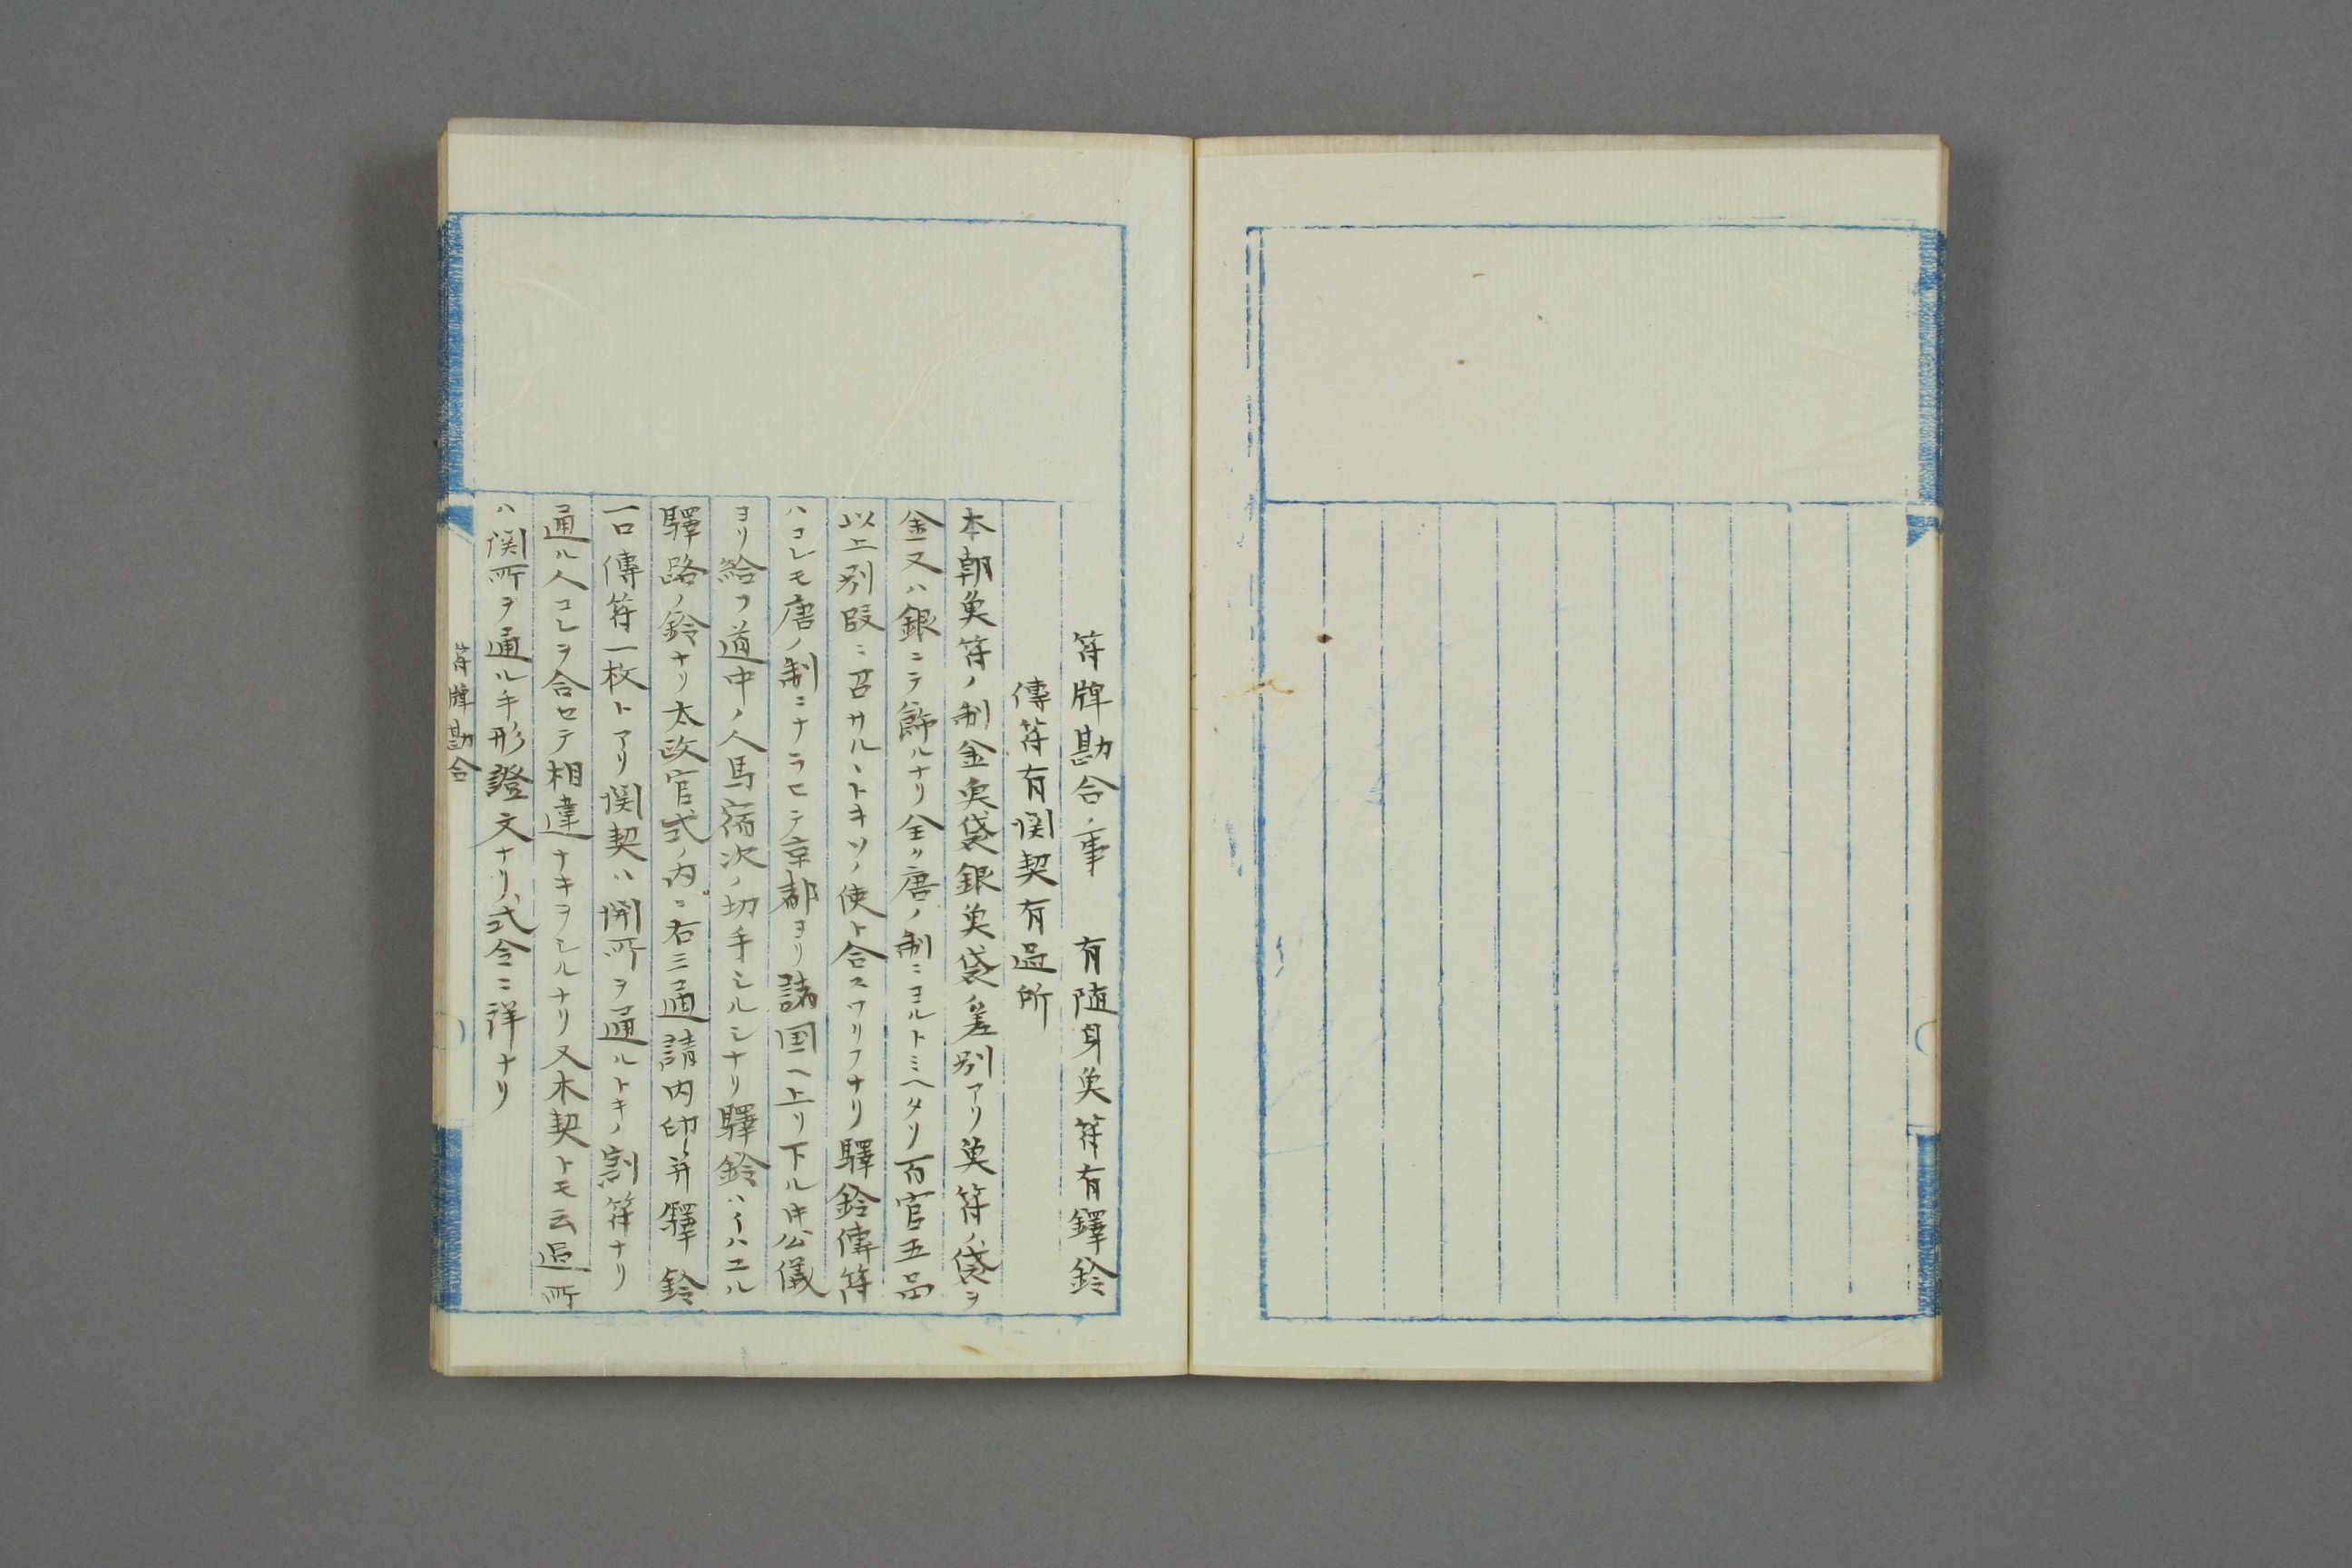 符牌勘合ノ事　有随身魚符有鐸鈴
傳符有関契有過所
本朝魚符ノ制金魚袋銀魚袋ノ差別アリ魚符ノ袋ヲ
金又ハ銀ニテ飾ルナリ全ク唐ノ制ニヨルトミヘタリ百官五品
以上別段ニ召サルヽトキソノ使ト合スワリフナリ驛鈴傳符
ハコレモ唐ノ制ニナラヒテ京都ヨリ諸国ヘ上リ下ル時公儀
ヨリ給フ道中ノ人馬宿次ノ切手シルシナリ驛鈴ハイハユル
驛路ノ鈴ナリ太政官式ノ内ニ右三通請内印并驛鈴
一口傳符一枚トアリ関契ハ関所ヲ通ルトキノ割符ナリ
通ル人コレヲ合セテ相違ナキヲシルナリ又木契トモ云過所
ハ関所ヲ通ル手形證文ナリ式令ニ詳ナリ
符牌勘合